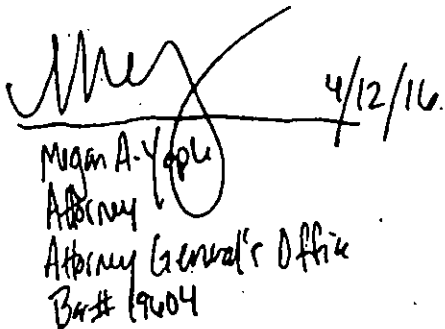 4/12/16.
Megan A. Yaple
Attorney
Attorney General's Office
Bar# 19604